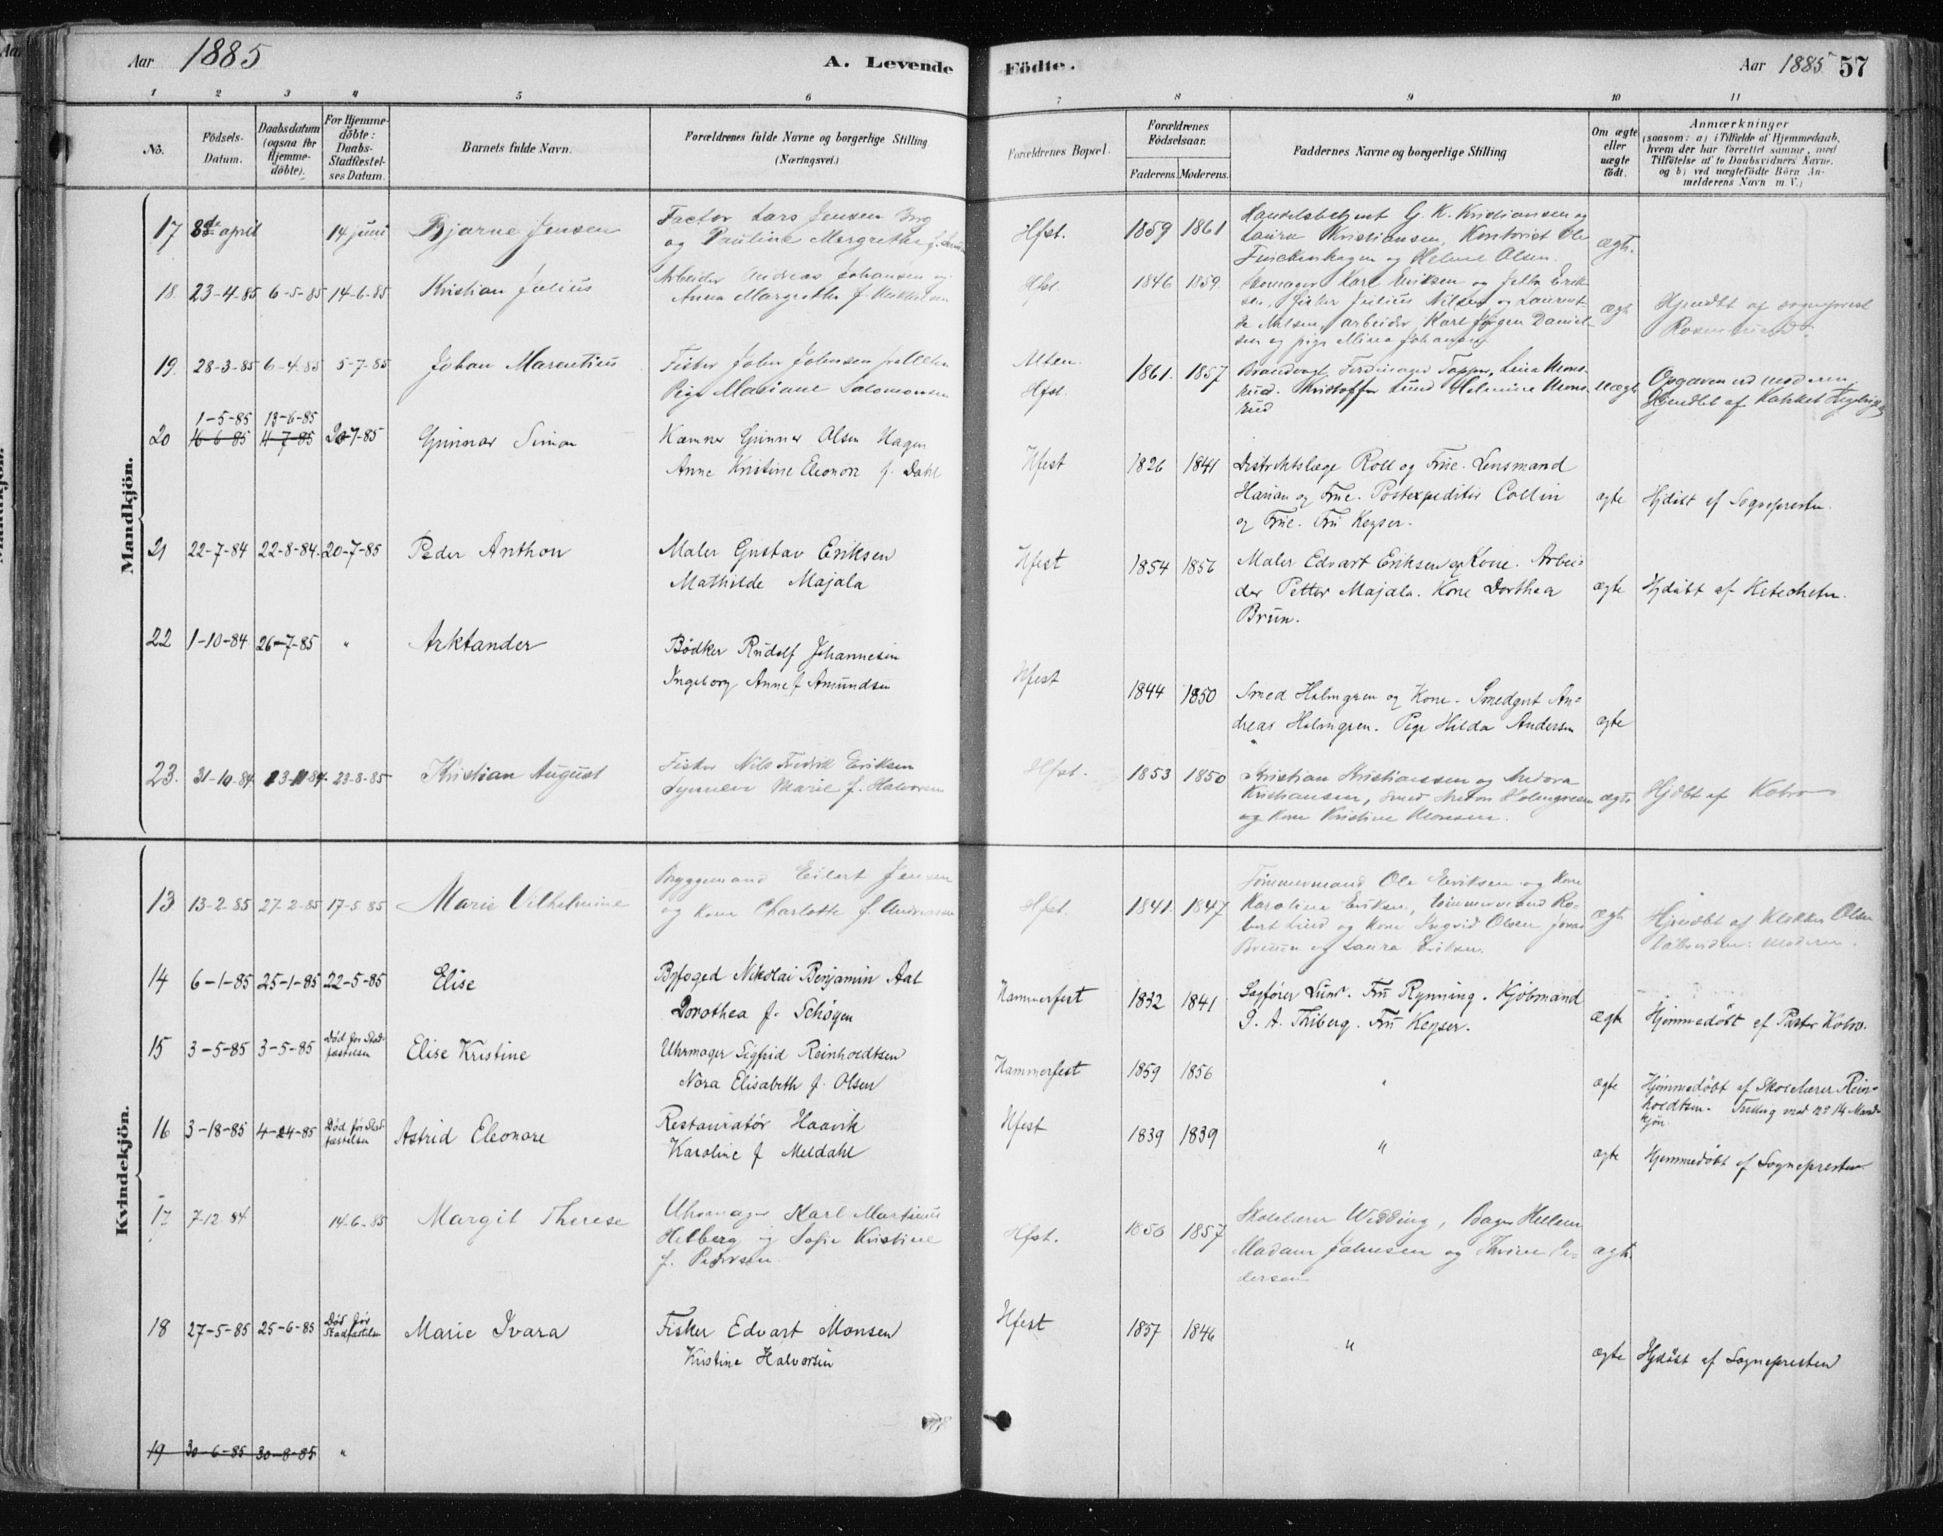 Aar 1885
A. Levende
Födte.
Aar 1885 57
1 2 3 4 5 6 7 8 9 10 11
No.
Födsels-
Datum.
Daabsdatum
(ogsaa for
Hjemme-
döbte).
For Hjemme-
döbte:
Daabs-
Stadfæstel-
ses Datum.
Barnets fulde Navn.
Forældrenes fulde Navne og borgerlige Stilling
(Næringsvei.)
Forældrenes Bopæl.
Forældrenes
Födselsaar.
Faderens. Moderens.
Faddernes Navne og borgerlige Stilling
Om ægte
eller
uægte
födt.
Anmærkninger
(saasom: a) i Tilfælde af Hjemmedaab,
hvem der har forrettet samme, med
Tilföielse af to Daabsvidners Navne.
og b) ved uægtefödte Börn An-
melderens Navn m. V.)
Mandkjön.
17 8de april 14 juni Bjarne Jensen
Factor Lars Jensen Berg
og Pauline Margrethe f.
Hfst. 1859 1861
Handelsbetjent G. K. Kristiansen og
Laura Kristiansen, Kontorist Ole
Finckenhagen og Helene Olsen.
ægte.
18. 23-4-85 6-5-85 14-6-85 Kristian Julius
Arbeider Andreas Johansen og
Anna Margrethe f.
Hfst. 1846 1859
Skomager Karl Eriksen og Erik-
sen, Fisker Julius Nilsen og Laurent-
se Nilsen, arbeider Karl Jørgen Daniel-
sen og pige Mina Johansen
ægte Hjmdbt af sogneprest
19. 28-3-85 6-4-85 5-7-85 Johan Marentius
Fisker John Johnsen
Pige Mariane Salomonsen
Alten
Hfst. 1861. 1857
Brandvagt Ferdinand Tapper, Lina Mons-
rud. Kristoffer Lund Helmine Mons-
rud
uægte Opgaven ved moderen
Hjmdbt af
20 1-5-85 13-6-85
16-6-85 4-7-85 20-7-85 Gunnar Simon
Kæmner Gunner Olsen Hagen
Anne Kristine Eleonore f. Dahl
Hfest 1826 1841
Distriktslæge Roll og Frue. Lensmand
Hansen og Frue. Postexpeditør Collin
og Frue. Fru Keyser.
ægte Hjdøbt af Sognepresten.
21 22-7-84 22-8-84. 20-7-85 Peder Anthon
Maler Gustav Eriksen
Mathilde Majala
Hfest 1854 1856
Maler Edvart Eriksen og Kone. Arbei-
der Petter Majala. Kone Dorthea
Brun.
ægte Hjdøbt af Katecheten.
22 1-10-84 26-7-85 " Arktander
Bödker Rudolf Johannesen
Ingeborg Anne f Amundsen
Hfest 1844 1850
Smed Holmgren og Kone. Smedgut An-
dreas Holmgren. Pige Hilda Andersen
ægte
23. 31-10-84. 23-11-84. 23-8-85 Kristian August
Fisker Nils Fredrik Eriksen
Synneve Marie f. Halvorsen
Hfst. 1853 1850
Kristian Kristianssen og Andora
Kristiansen, Smed Anton Holmgreen
og Kone Kristine Monsen.
ægte Hjdbt af Kolvo
Kvindekjön.
13 13-2-85 27-2-85 17-5-85 Marie Vilhelmine
Bryggemand Eilert Jensen
og Kone Charlotte f. Andreasen
Hfst. 1841. 1847
Tømmermand Ole Eriksen og Kone
Karoline Eriksen, Ro-
bert Lind og Kone Ingrid Olsen
og Laura Eriksen.
ægte Hjmdøbt af Klokker Olsen
14 6-1-85 25-1-85 22-5-85 Elise
Byfoged Nikolai Benjamin Aal
Dorothea f. Schögen
Hammerfest 1832 1841
Sagfører Lund. Fru Rynning. Kjöbmand
G. A. Thiberg. Fru Keyser.
ægte Hjemmedøbt af Pastor Kolvo.
15 3-5-85 3-5-85 Død før Stad-
fæstelsen Elise Kristine
Uhrmager Sigfrid Reinholdtsen
Nora Elisabeth f. Olsen
Hammerfest 1859 1856 "
ægte Hjemmedøbt af Skolelærer Rein-
holdtsen. Tvilling med No 14 Mand-
kjön
16 3-18-85 4-24-85 Død før Stad-
fæstelsen Astrid Eleonore
Restauratör Haavik
Karoline f Meldahl
Hfest 1839 1839 "
ægte Hjemmedøbt af Sognepresten
17 7-12-84 14-6-85 Margit Therese
Uhrmager Karl Martinus
Helberg og Sofie Kristine
f. Pedersen
Hfst. 1856 1857
Skolelærer Widding, Bager Hellsen
Madam Johnsen og Thrine Pe-
dersen
ægte.
18 27-5-85 25-6-85 Død før
Stadfæstelsen Marie Ivara
Fisker Edvart Monsen
Kristine Halvorsen
Hfest 1857 1846 "
ægte Hjdöbt af Sognepresten
19 30-6-85 30-8-85 "